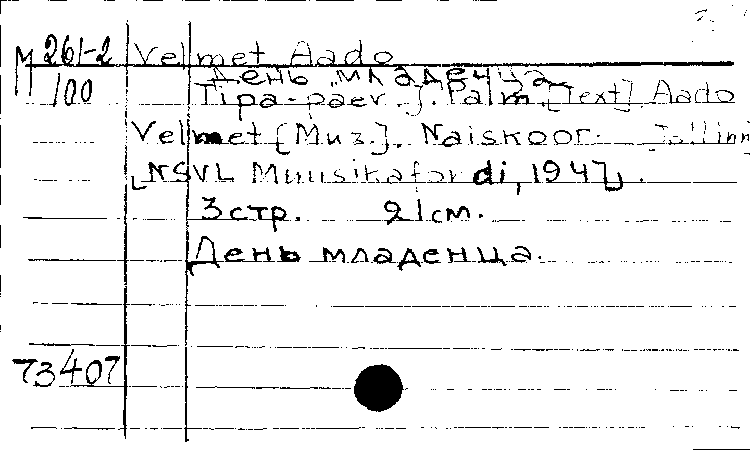 M 261-2 Velmet Aado
День младенца
100 Tipa-paev. J. Palm. [Text]. Aado
Velmet [Муз.]. Naiskoor. Tallinn
[NSVL Muusikafondi, 1947].
3 стр. 21 см.
День младенца.
73407